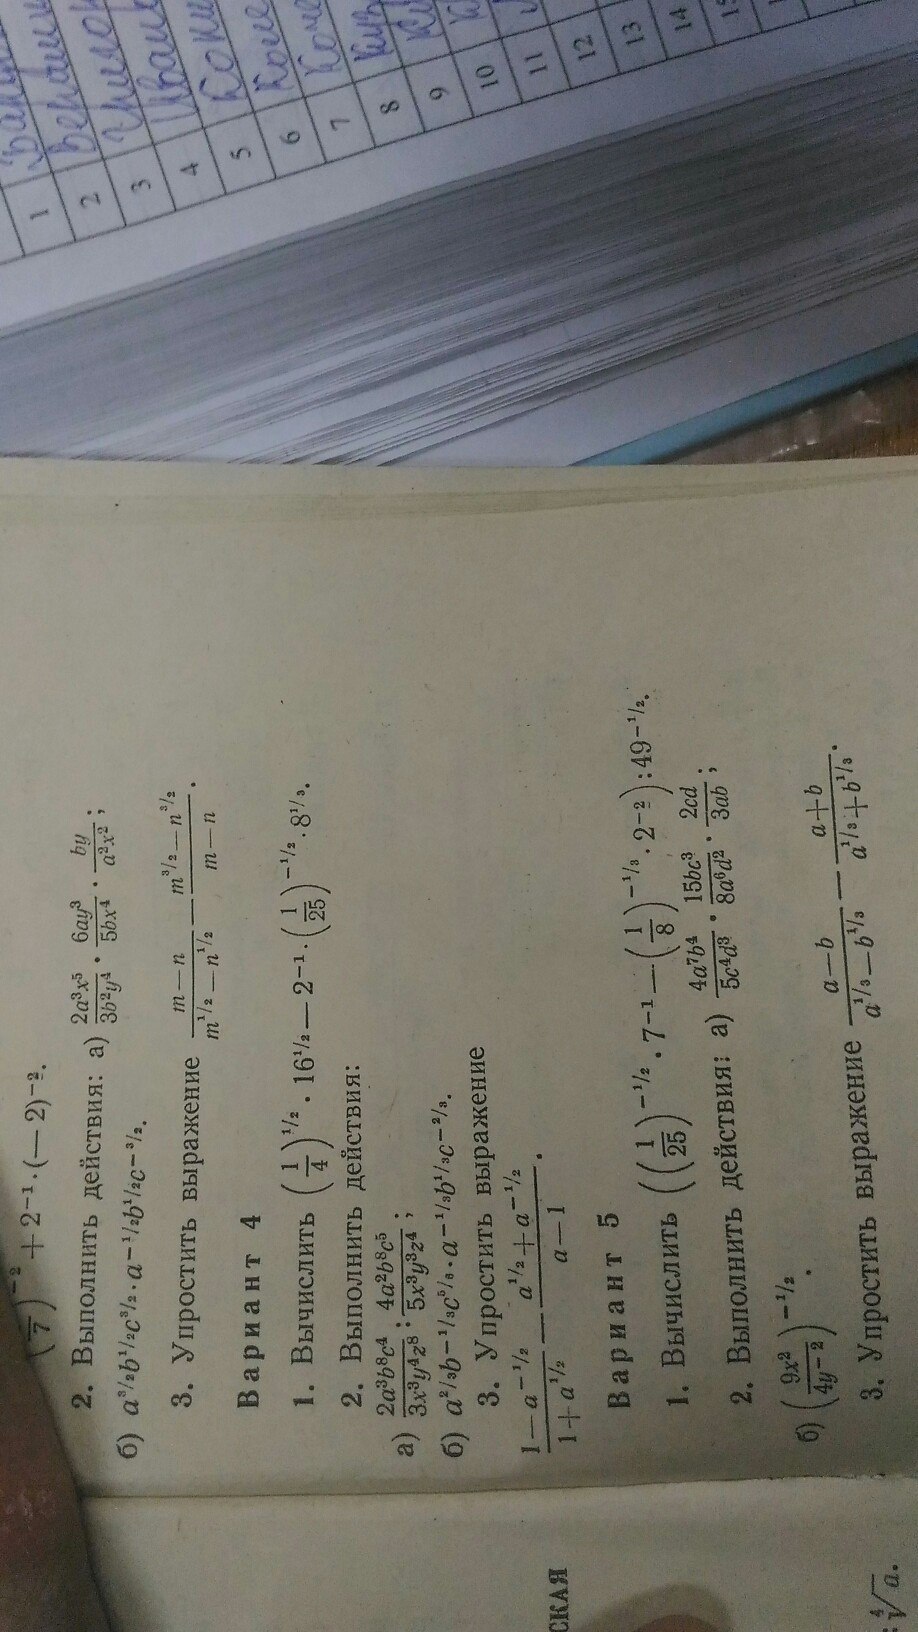 1
2
3
4
5
6
7
8
9
10
11
12
13
14
(1/7)⁻² + 2⁻¹·(—2)⁻².
2. Выполнить действия: а) 2a³x⁵/3b²y⁴ · 6ay³/5bx⁴ · by/a²x²;
б) a³/²b¹/²c³/²·a⁻¹/²b¹/²c⁻³/².
3. Упростить выражение (m—n)/(m¹/²—n¹/²) — (m³/²—n³/²)/(m—n).
Вариант 4
1. Вычислить (1/4)¹/² · 16¹/² — 2⁻¹ · (1/25)⁻¹/² · 8¹/³.
2. Выполнить действия:
а) 2a³b⁸c⁴/3x³y⁴z⁸ : 4a²b⁸c⁵/5x³y³z⁴;
б) a²/³b⁻¹/³c⁵/³·a⁻¹/³b¹/³c⁻²/³.
3. Упростить выражение
(1—a⁻¹/²)/(1+a¹/²) — (a¹/²+a⁻¹/²)/(a—1).
Вариант 5
1. Вычислить ((1/25)⁻¹/² · 7⁻¹ — (1/8)⁻¹/³ · 2⁻²) : 49⁻¹/².
2. Выполнить действия: а) 4a⁷b⁴/5c⁴d³ · 15bc³/8a⁶d² · 2cd/3ab;
б) (9x²/4y⁻²)⁻¹/².
3. Упростить выражение (a—b)/(a¹/³—b¹/³) — (a+b)/(a¹/³+b¹/³).
СКАЯ
⁴√a.